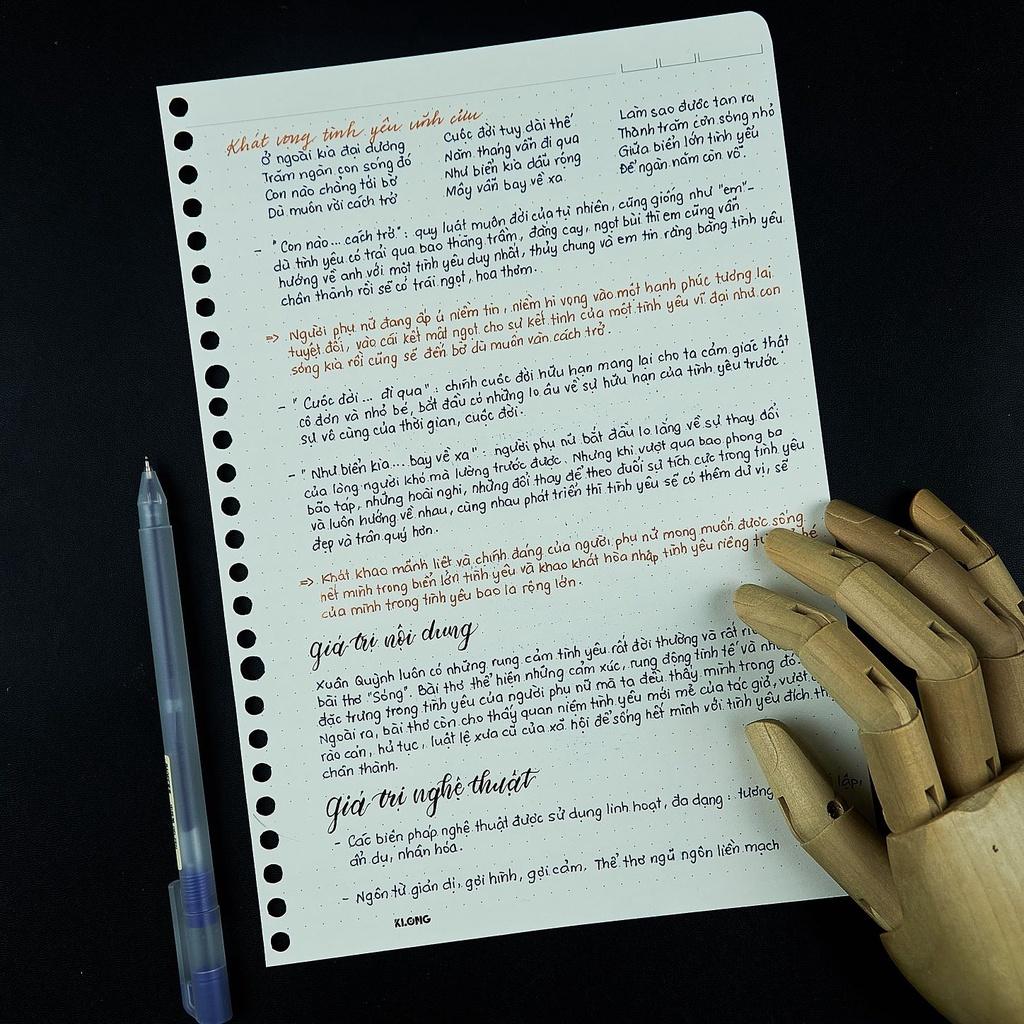 Khát vọng tình yêu vĩnh cửu
Ở ngoài kia đại dương
Trăm ngàn con sóng đó
Con nào chẳng tới bờ
Dù muôn vời cách trở
Cuộc đời tuy dài thế
Năm tháng vẫn đi qua
Như biển kia dẫu rộng
Mây vẫn bay về xa
Làm sao được tan ra
Thành trăm con sóng nhỏ
Giữa biển lớn tình yêu
Để ngàn năm còn vỗ".
- "Con nào ... cách trở": quy luật muôn đời của tự nhiên, cũng giống như "em"-
dù tình yêu có trải qua bao thăng trầm, đắng cay, ngọt bùi thì em cũng vẫn
hướng về anh với một tình yêu duy nhất, thủy chung và em tin rằng bằng tình yêu
chân thành rồi sẽ có trái ngọt, hoa thơm.
=> Người phụ nữ đang ấp ủ niềm tin, niềm hi vọng vào một hạnh phúc tương lai
tuyệt đối, vào cái kết mật ngọt cho sự kết tinh của một tình yêu vĩ đại như con
sóng kia rồi cũng sẽ đến bờ dù muôn vàn cách trở.
- "Cuộc đời ... đi qua": chính cuộc đời hữu hạn mang lại cho ta cảm giác thật
cô đơn và nhỏ bé, bắt đầu có những lo âu về sự hữu hạn của tình yêu trước
sự vô cùng của thời gian, cuộc đời.
- "Như biển kia ... bay về xa": người phụ nữ bắt đầu lo lắng về sự thay đổi
của lòng người khó mà lường trước được. Nhưng khi vượt qua bao phong ba
bão táp, những hoài nghi, những đổi thay để theo đuổi sự tích cực trong tình yêu
và luôn hướng về nhau, cùng nhau phát triển thì tình yêu sẽ có thêm dư vị, sẽ
đẹp và trân quý hơn.
=> Khát khao mãnh liệt và chính đáng của người phụ nữ mong muốn được sống
hết mình trong biển lớn tình yêu và khao khát hòa nhập tình yêu riêng bé
của mình trong tình yêu bao la rộng lớn.
giá trị nội dung
Xuân Quỳnh luôn có những rung cảm tình yêu rất đời thường và rất
bài thơ "Sóng". Bài thơ thể hiện những cảm xúc, rung động tinh tế và
đặc trưng trong tình yêu của người phụ nữ mà ta đều thấy mình trong đó
Ngoài ra, bài thơ còn cho thấy quan niệm tình yêu mới mẻ của tác giả, vượt
rào cản, hủ tục, luật lệ xưa cũ của xã hội để sống hết mình với tình yêu đích
chân thành.
giá trị nghệ thuật
- Các biện pháp nghệ thuật được sử dụng linh hoạt, đa dạng: tương lập,
ẩn dụ, nhân hóa.
- Ngôn từ giản dị, gợi hình, gợi cảm. Thể thơ ngũ ngôn liền mạch
KLONG